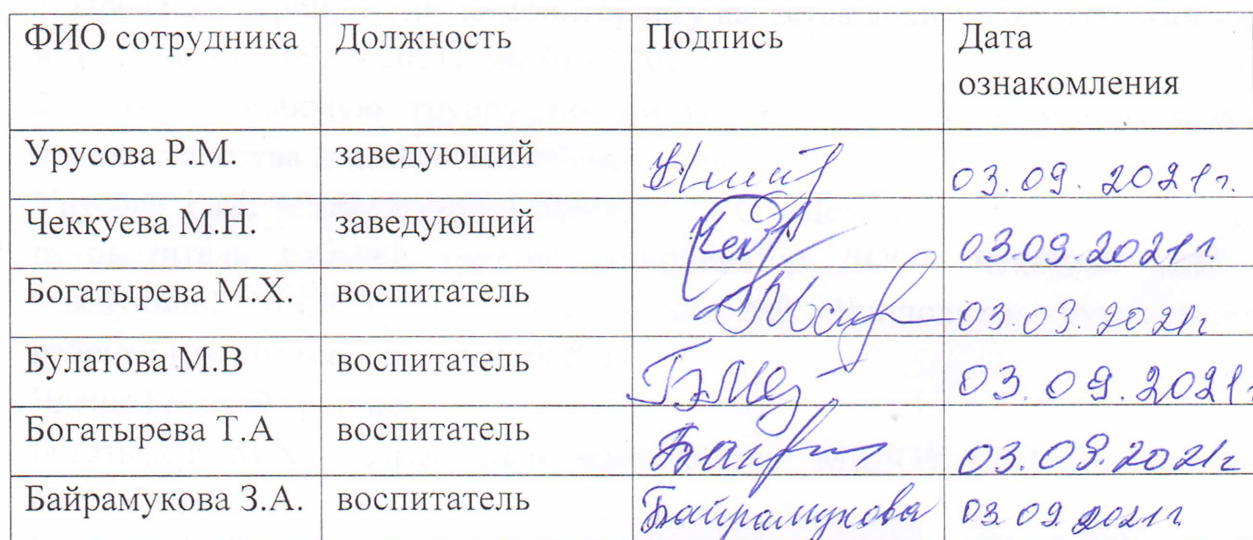 ФИО сотрудника Должность Подпись Дата
ознакомления
Урусова Р.М. заведующий 03.09.2021г.
Чеккуева М.Н. заведующий 03.09.2021г.
Богатырева М.Х. воспитатель 03.09.2021г
Булатова М.В воспитатель 03.09.2021г
Богатырева Т.А воспитатель 03.09.2021г
Байрамукова З.А. воспитатель Байрамукова 03.09.2021г